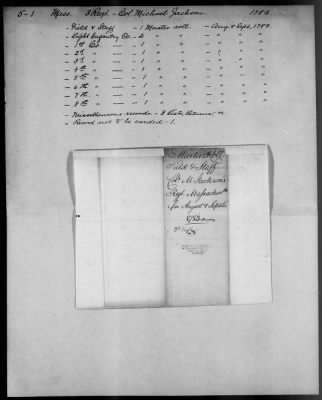 5-1. Mass. 3 Regt. - Col. Michael Jackson. 1783.
- Field & Staff - 1 Muster roll - Aug & Sept, 1783.
- Light Infantry Co. - 2 " " " " "
- 1st Co. - 1 " " " " "
- 2d " - 1 " " " " "
- 3d " - 1 " " " " "
- 4th " - 1 " " " " "
- 5th " - 1 " " " " "
- 6th " - 1 " " " " "
- 7th " - 1 " " " " "
- 8th " - 1 " " " " "
- Miscellaneous records - 3 Lists, Returns, &c
- Record not to be carded - 1.
Muster Roll
Field & Staff
Colo M Jackson's
Regt Massachu
for August & Septr
1783